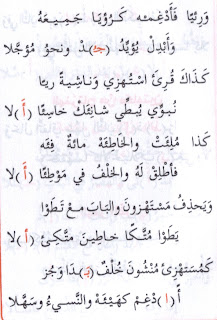 وَرِئْيًا فَأَدْغِمْهُ كَرُؤْيَا جَمِيعَهُ
وَأَبْدِلْ يُؤَيِّدُ (جُـ)ـدْ وَنَحْوُ مُؤَجَّلَا
كَذَاكَ قُرِئْ اسْتُهْزِي وَنَاشِيَةً رِيَا
نُبَوِّي يُبَطِّي شَانِئَكْ خَاسِئًا (أَ)لَا
كَذَا مُلِئَتْ وَالْخَاطِئَهْ مِائَةٌ فِئَهْ
فَأَطْلِقْ لَهُ وَالْخُلْفُ فِي مَوْطِئًا (أَ)لَا
وَيَحْذِفُ مُسْتَهْزُونَ وَالْبَابَ مَعْ تَطَوْا
يَطَوْا مُتَّكًا خَاطِينَ مُتَّكِئِي (أُ)لَا
كَمُسْتَهْزِئِي مُنْشُونَ خُلْفٌ (بَـ)ـدَا وَجُزْ
أً (ا)دْغِمْ كَهَيْئَهْ وَالنَّسِيءُ وَسَهِّلَا